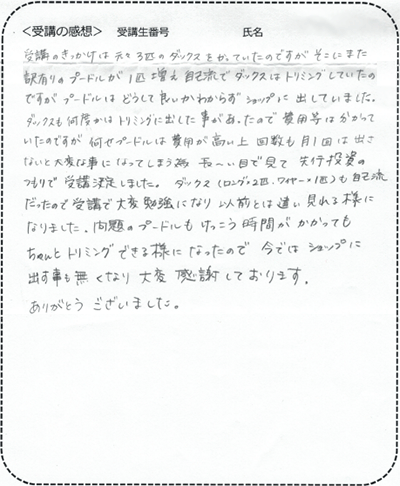 ＜受講の感想＞　受講生番号　　　　　氏名
受講のきっかけは元々3匹のダックスをかっていたのですがそこにまた
訳有りのプードルが1匹増え自己流でダックスはトリミングしていたの
ですがプードルはどうして良いかわからずショップに出していました。
ダックスも何度かはトリミングに出した事があったので費用等は分かって
いたのですが何せプードルは費用が高い上回数も月1回は出さ
ないと大変な事になってしまう為長〜い目で見て先行投資の
つもりで受講決定しました。ダックス(ロング2匹、ワイヤー1匹)も自己流
だったので受講で大変勉強になり以前とは違い見れる様に
なりました。問題のプードルもけっこう時間がかかっても
ちゃんとトリミングできる様になったので今ではショップに
出す事も無くなり大変感謝しております。
ありがとうございました。